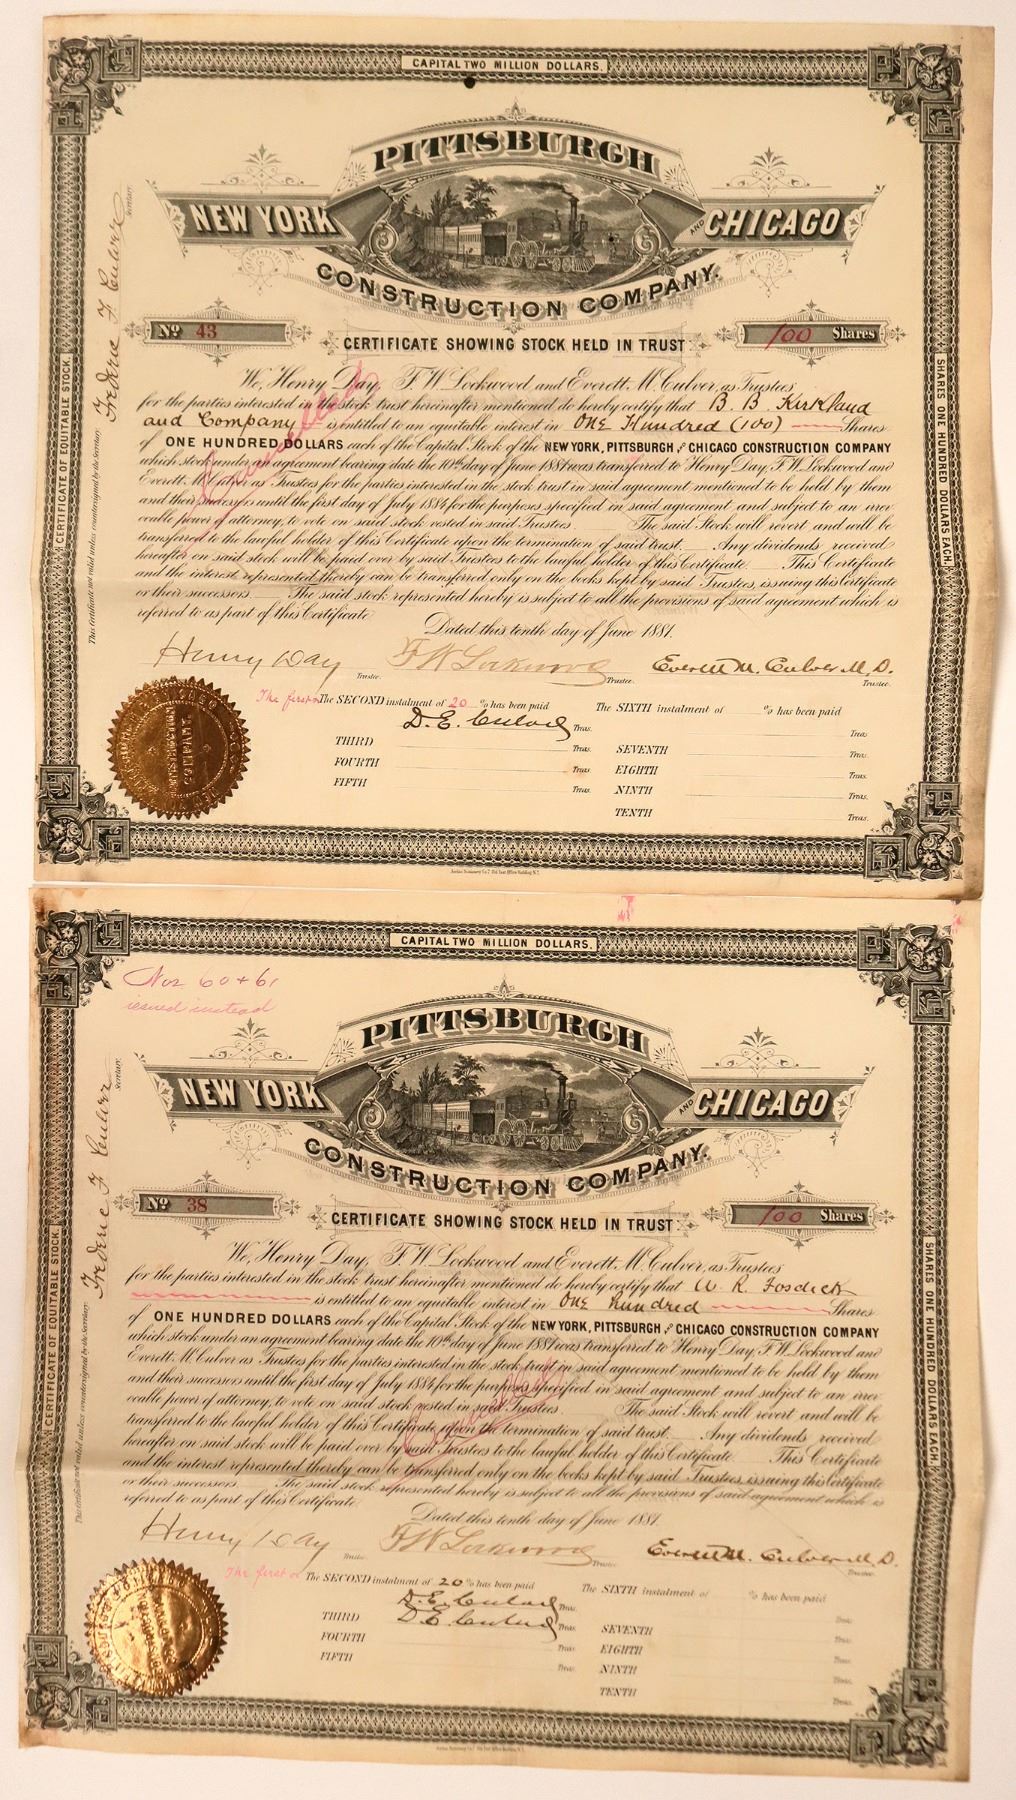 CAPITAL TWO MILLION DOLLARS.
PITTSBURGH
NEW YORK AND CHICAGO
CONSTRUCTION COMPANY.
No 43
CERTIFICATE SHOWING STOCK HELD IN TRUST
100 Shares
We, Henry Day, F. W. Lockwood and Everett. M. Culver, as Trustees
for the parties interested in the stock trust hereinafter mentioned do hereby certify that B. B. Kirkland
and Company is entitled to an equitable interest in One Hundred (100) Shares
of ONE HUNDRED DOLLARS each of the Capital Stock of the NEW YORK, PITTSBURGH AND CHICAGO CONSTRUCTION COMPANY
which stock under an agreement bearing date the 10th day of June 1881 was transferred to Henry Day, F. W. Lockwood and
Everett. M. Culver as Trustees for the parties interested in the stock trust in said agreement mentioned to be held by them
and their successors until the first day of July 1884 for the purposes specified in said agreement and subject to an irrev
ocable power of attorney, to vote on said stock vested in said Trustees. The said Stock will revert and will be
transferred to the lawful holder of this Certificate upon the termination of said trust. Any dividends received
hereafter on said stock will be paid over by said Trustees to the lawful holder of this Certificate. This Certificate
and the interest represented thereby can be transferred only on the books kept by said Trustees, issuing this Certificate
or their successors. The said stock represented hereby is subject to all the provisions of said agreement which is
referred to as part of this Certificate.
Cancelled
Dated this tenth day of June 1881.
Henry Day Trustee.
F W Lockwood Trustee.
Everett M. Culver M, D. Trustee.
The first & The SECOND instalment of 20 % has been paid
Treas.
The SIXTH instalment of % has been paid
Treas.
THIRD Treas.
SEVENTH Treas.
FOURTH Treas.
EIGHTH Treas.
FIFTH Treas.
NINTH Treas.
TENTH Treas.
CERTIFICATE OF EQUITABLE STOCK.
This Certificate not valid unless countersigned by the Secretary. Frederic F Culver Secretary.
SHARES ONE HUNDRED DOLLARS EACH.
CAPITAL TWO MILLION DOLLARS.
Nos 60 + 61
issued instead
PITTSBURGH
NEW YORK AND CHICAGO
CONSTRUCTION COMPANY.
No 38
CERTIFICATE SHOWING STOCK HELD IN TRUST
100 Shares
We, Henry Day, F. W. Lockwood and Everett. M. Culver, as Trustees
for the parties interested in the stock trust hereinafter mentioned do hereby certify that W. R. Fosdick
is entitled to an equitable interest in One hundred Shares
of ONE HUNDRED DOLLARS each of the Capital Stock of the NEW YORK, PITTSBURGH AND CHICAGO CONSTRUCTION COMPANY
which stock under an agreement bearing date the 10th day of June 1881 was transferred to Henry Day, F. W. Lockwood and
Everett. M. Culver as Trustees for the parties interested in the stock trust in said agreement mentioned to be held by them
and their successors until the first day of July 1884 for the purposes specified in said agreement and subject to an irrev
ocable power of attorney, to vote on said stock vested in said Trustees. The said Stock will revert and will be
transferred to the lawful holder of this Certificate upon the termination of said trust. Any dividends received
hereafter on said stock will be paid over by said Trustees to the lawful holder of this Certificate. This Certificate
and the interest represented thereby can be transferred only on the books kept by said Trustees, issuing this Certificate
or their successors. The said stock represented hereby is subject to all the provisions of said agreement which is
referred to as part of this Certificate.
Cancelled
Dated this tenth day of June 1881.
Henry Day Trustee.
F W Lockwood Trustee.
Everett M. Culver M, D. Trustee.
The first & The SECOND instalment of 20 % has been paid
Treas.
The SIXTH instalment of % has been paid
Treas.
THIRD Treas.
SEVENTH Treas.
FOURTH Treas.
EIGHTH Treas.
FIFTH Treas.
NINTH Treas.
TENTH Treas.
CERTIFICATE OF EQUITABLE STOCK.
This Certificate not valid unless countersigned by the Secretary. Frederic F Culver Secretary.
SHARES ONE HUNDRED DOLLARS EACH.